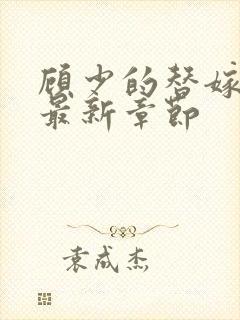 顾少的替嫁
最新章节
袁成杰